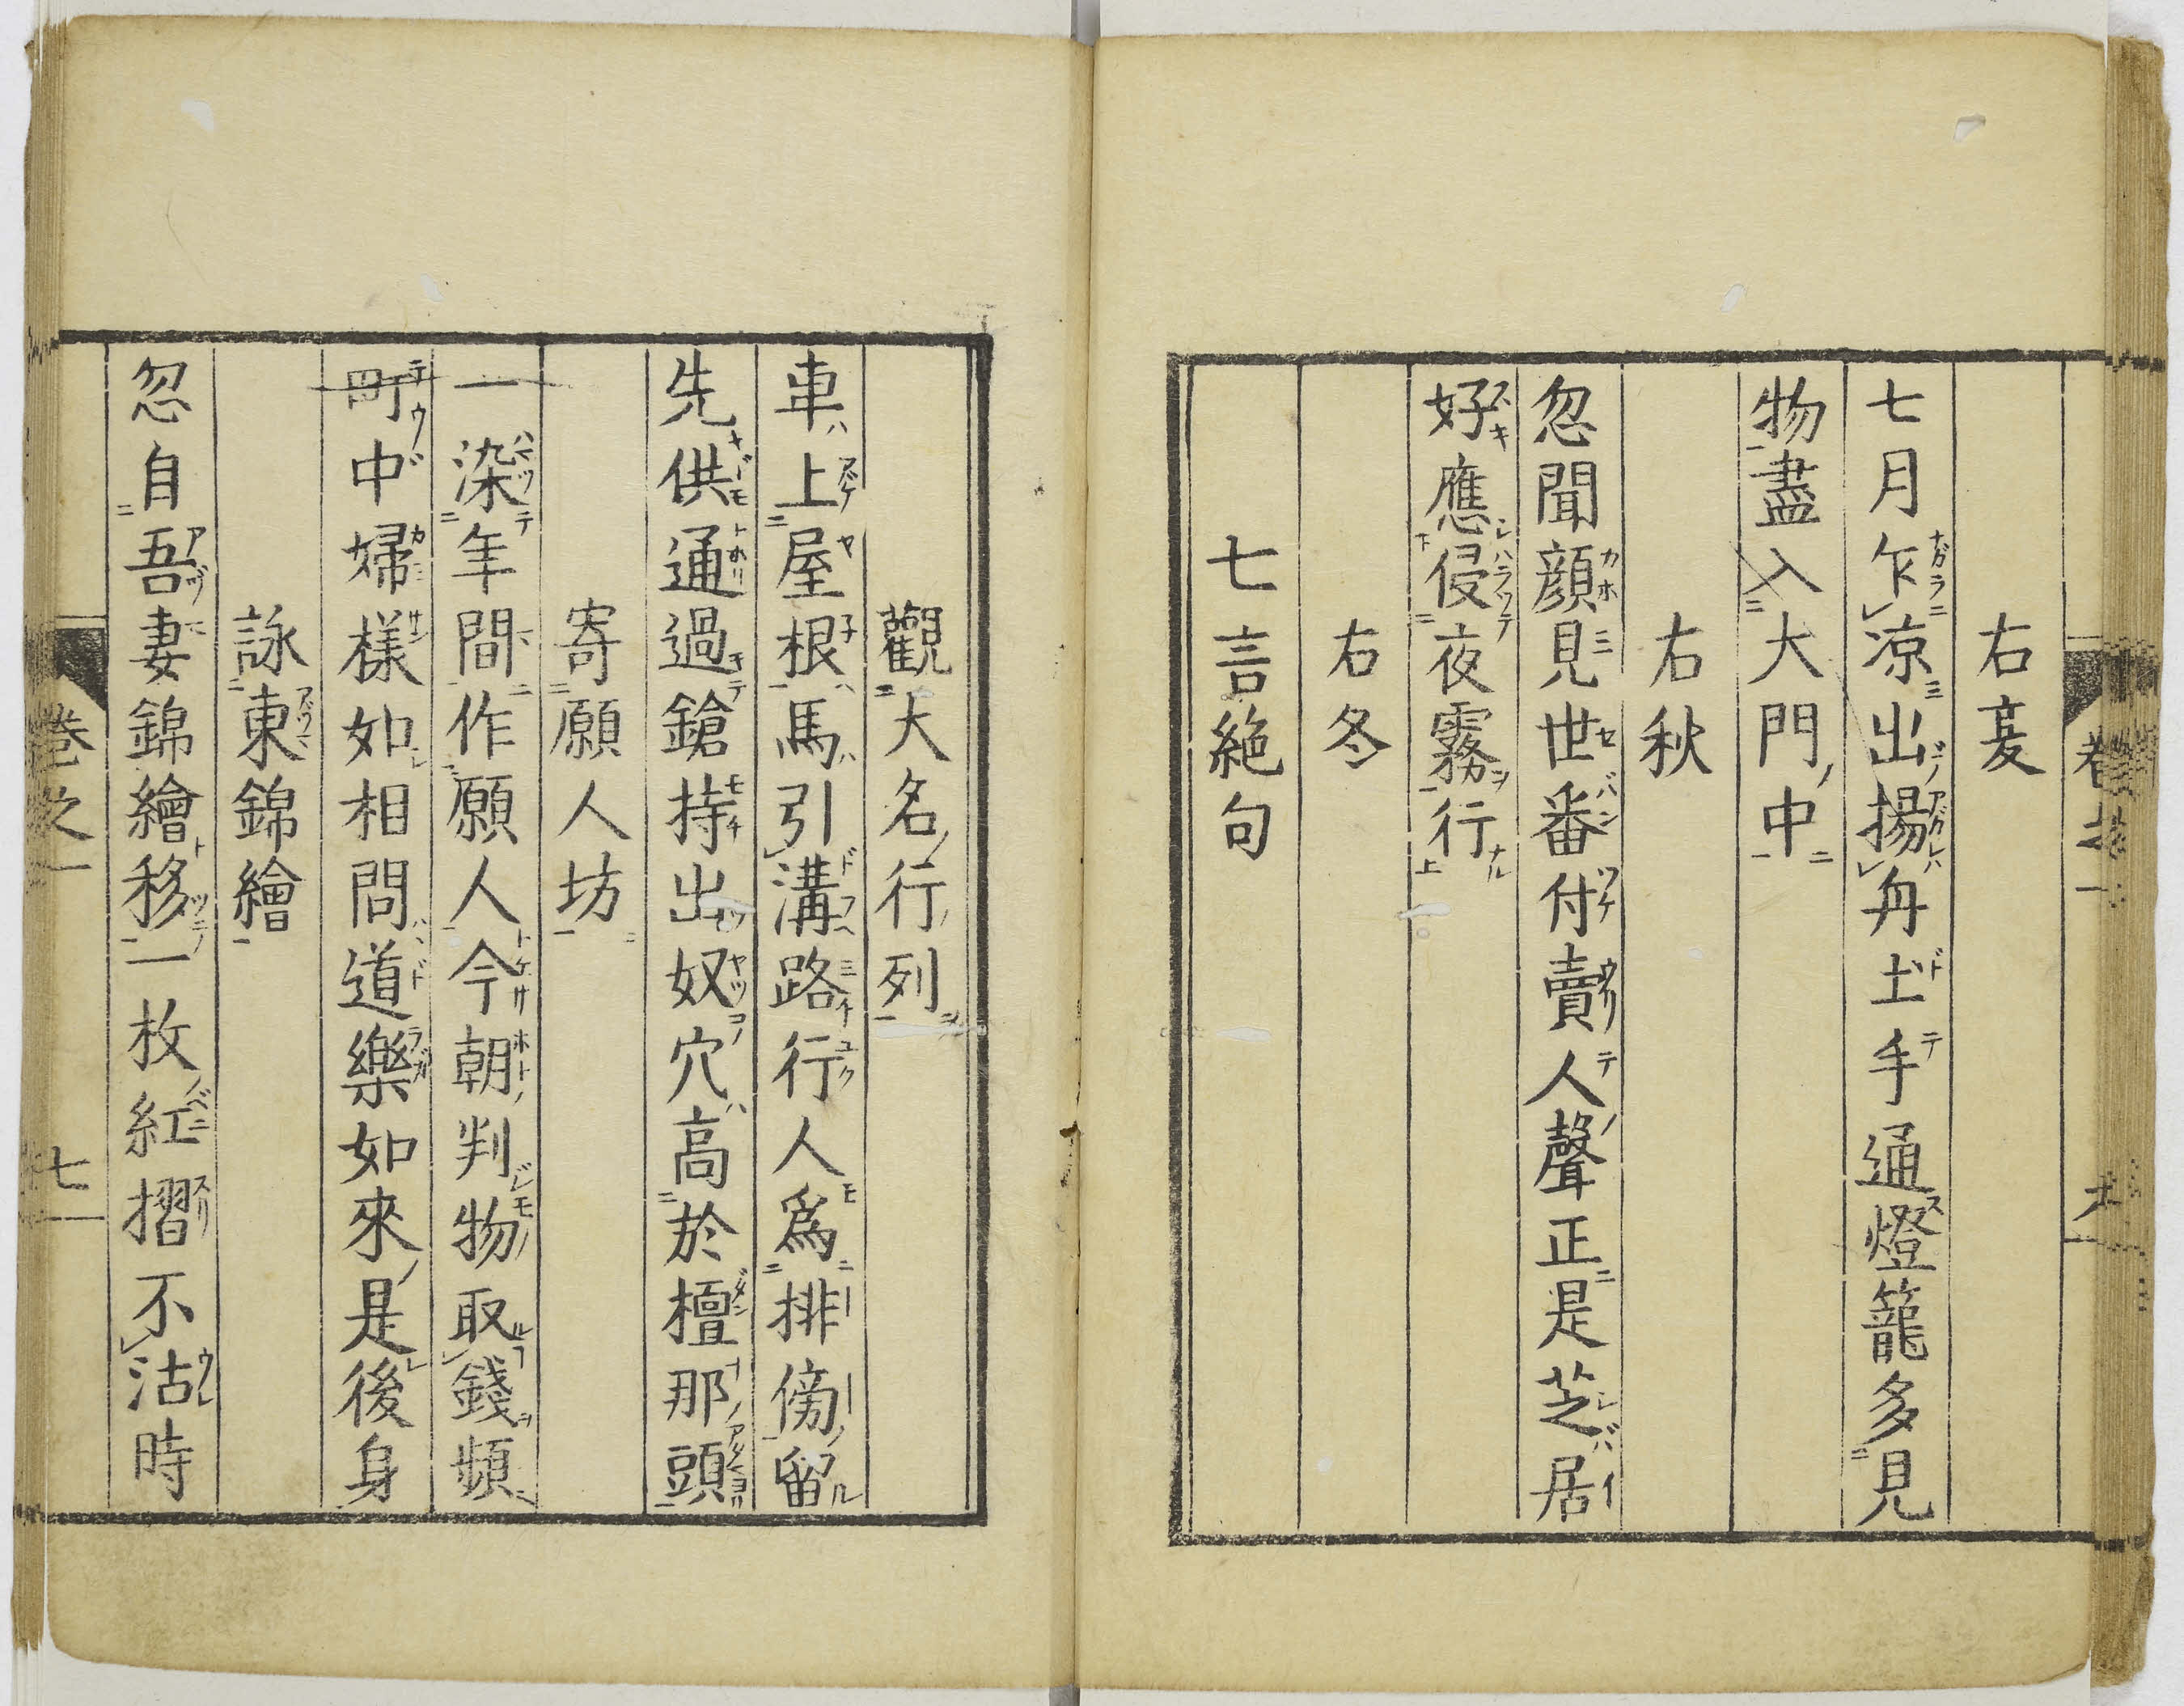 右夏
七月乍凉出揚舟土手通燈籠多見
物盡入大門中
右秋
忽聞顔見世番付賣人聲正是芝居
好應侵夜霧行
右冬
七言絶句
觀大名行列
車上屋根馬引溝路行人爲排傍留
先供通過鎗持出奴穴高於檀那頭
寄願人坊
一染年間作願人今朝判物取錢頻
町中婦樣如相問道樂如來是後身
詠東錦繪
忽自吾妻錦繪移一枚紅摺不沽時
卷之一
七